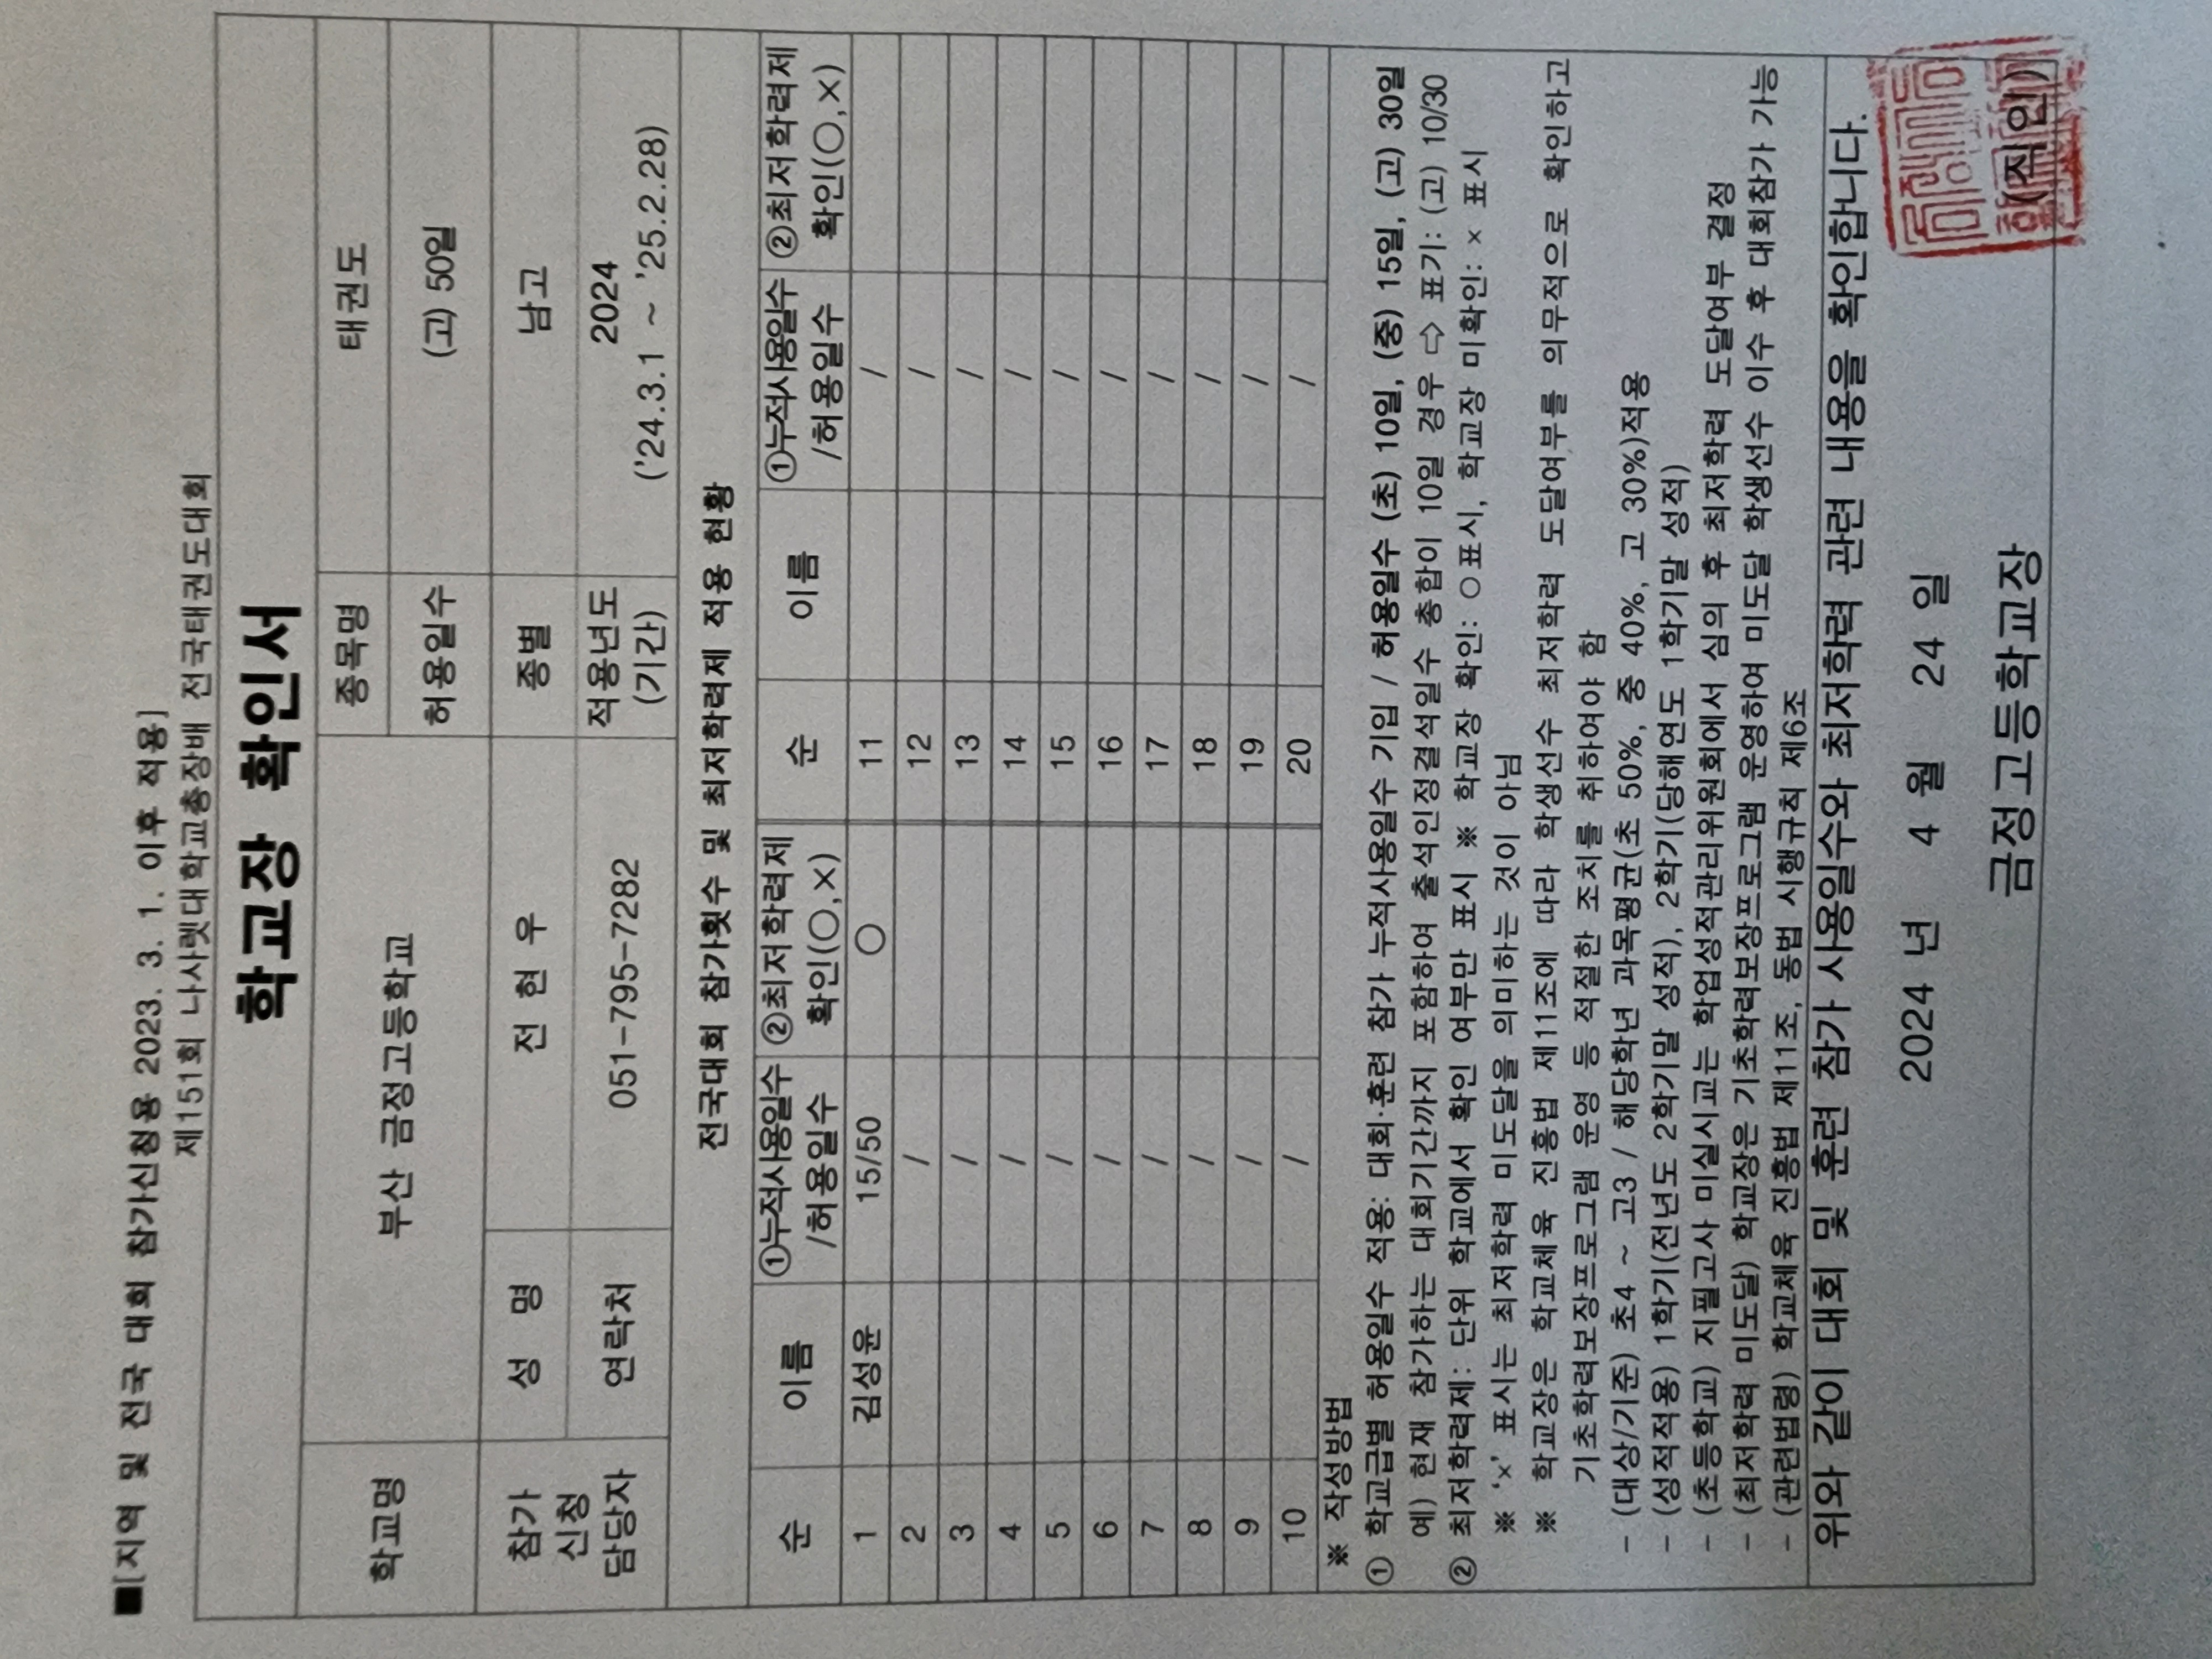 ■[지역 및 전국 대회 참가신청용 2023. 3. 1. 이후 적용]
제151회 나사렛대학교총장배 전국태권도대회
학교장 확인서
학교명 부산 금정고등학교 종목명 태권도
허용일수 (고) 50일
참가 신청 담당자 성 명 전 현 우 종별 남고
연락처 051-795-7282 적용년도 (기간) 2024 ('24.3.1 ~ '25.2.28)
전국대회 참가횟수 및 최저학력제 적용 현황
순 이름 ①누적사용일수 /허용일수 ②최저학력제 확인(○,×) 순 이름 ①누적사용일수 /허용일수 ②최저학력제 확인(○,×)
1 김성윤 15/50 ○ 11 /
2 / 12 /
3 / 13 /
4 / 14 /
5 / 15 /
6 / 16 /
7 / 17 /
8 / 18 /
9 / 19 /
10 / 20 /
※ 작성방법
① 학교급별 허용일수 적용: 대회·훈련 참가 누적사용일수 기입 / 허용일수 (초) 10일, (중) 15일, (고) 30일
예) 현재 참가하는 대회기간까지 포함하여 출석인정결석일수 총합이 10일 경우 ⇨ 표기: (고) 10/30
② 최저학력제: 단위 학교에서 확인 여부만 표시 ※ 학교장 확인: ○표시, 학교장 미확인: × 표시
※ '×' 표시는 최저학력 미도달을 의미하는 것이 아님
※ 학교장은 학교체육 진흥법 제11조에 따라 학생선수 최저학력 도달여부를 의무적으로 확인하고
기초학력보장프로그램 운영 등 적절한 조치를 취하여야 함
- (대상/기준) 초4 ~ 고3 / 해당학년 과목평균(초 50%, 중 40%, 고 30%)적용
- (성적적용) 1학기(전년도 2학기말 성적), 2학기(당해연도 1학기말 성적)
- (초등학교) 지필고사 미실시교는 학업성적관리위원회에서 심의 후 최저학력 도달여부 결정
- (최저학력 미도달) 학교장은 기초학력보장프로그램 운영하여 미도달 학생선수 이수 후 대회참가 가능
- (관련법령) 학교체육 진흥법 제11조, 동법 시행규칙 제6조
위와 같이 대회 및 훈련 참가 사용일수와 최저학력 관련 내용을 확인합니다.
2024 년 4 월 24 일
금정고등학교장 (직인)